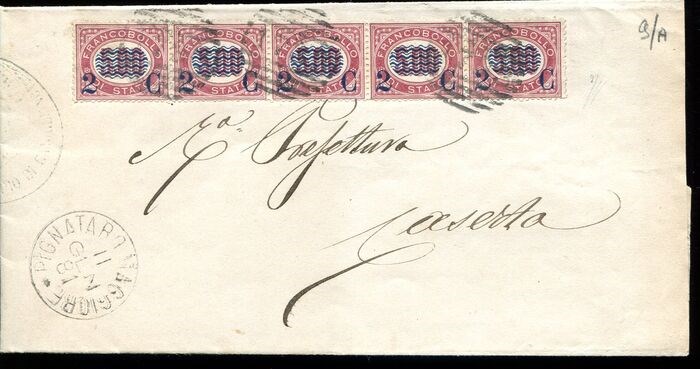 FRANCOBOLLO FRANCOBOLLO FRANCOBOLLO FRANCOBOLLO FRANCOBOLLO
2 C 2 C 2 C 2 C 2 C
DI STATO DI STATO DI STATO DI STATO DI STATO
9/A
Prefettura
Caserta
PIGNATARO MAGGIORE
11